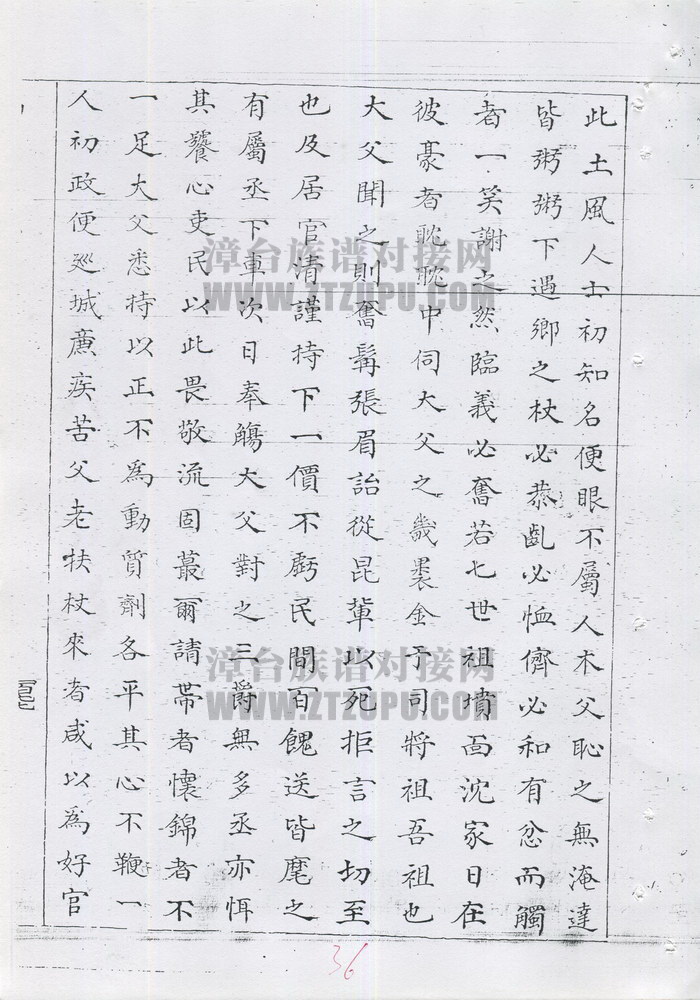 此土風人士初知名便眼不屬人木父恥之無淹達
皆粥粥下遇鄉之杖必恭亂必恤儕必和有忿而觸
者一笑謝之然臨義必奮若七世祖墳面沈家日在
彼豪者眈眈中伺大父之幾裹金予司將祖吾祖也
大父聞之則奮髯張眉詒從昆輩以死拒言之切至
也及居官清謹持下一價不虧民間百餽送皆麾之
有屬丞下車次日奉觴大父對之三爵無多丞亦恆
其饔心吏民以此畏敬流固蕞爾請帶者懷錦者不
一足大父悉持以正不為動質劑各平其心不鞭一
人初政便巡城廡疾苦父老扶杖來者咸以為好官
漳台族谱对接网
WWW.ZTZUPU.COM
漳台族谱对接网
WWW.ZTZUPU.COM
36